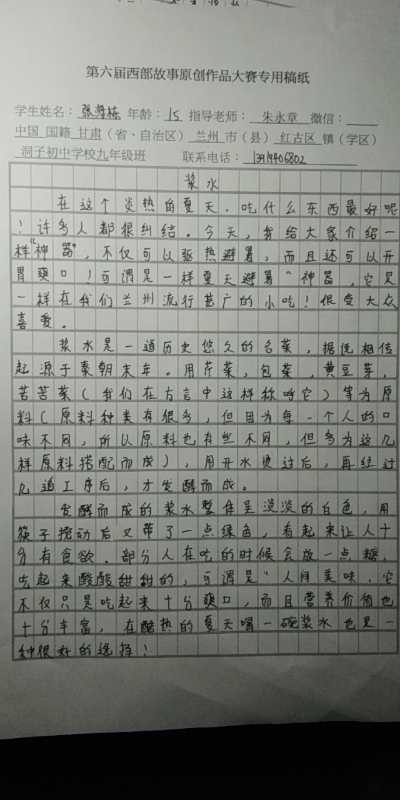 第六届西部故事原创作品大赛专用稿纸
学生姓名： 年龄：15 指导老师： 朱永章 微信：
中国 国籍 甘肃（省、自治区） 兰州 市（县） 红古区 镇（学区）
洞子初中学校九年级班 联系电话：
浆水
在这个炎热的夏天，吃什么东西最好呢
！许多人都很纠结。今天，我给大家介绍一
样“神器”，不仅可以驱热避暑，而且还可以开
胃爽口！可谓是一样夏天避暑“神器，它是
一样在我们兰州流行甚广的小吃！很受大众
喜爱。
浆水是一道历史悠久的名菜，据传相传
起源于秦朝末年。用芹菜，包菜，黄豆芽，
苦苦菜（我们在方言中这样称呼它）等为原
料（原料种类有很多，但因为每一个人的口
味不同，所以原料也有些不同，但多为这几
样原料搭配而成），用开水烫过后，再经过
几道工序后，才发酵而成。
发酵而成的浆水整体呈淡淡的白色，用
筷子搅动后又带了一点绿色，看起来让人十
分有食欲。部分人在吃的时候会放一点糖，
吃起来酸酸甜甜的，可谓是“人间美味，它
不仅只是吃起来十分爽口，而且营养价值也
十分丰富，在酷热的夏天喝一碗浆水也是一
种很好的选择！